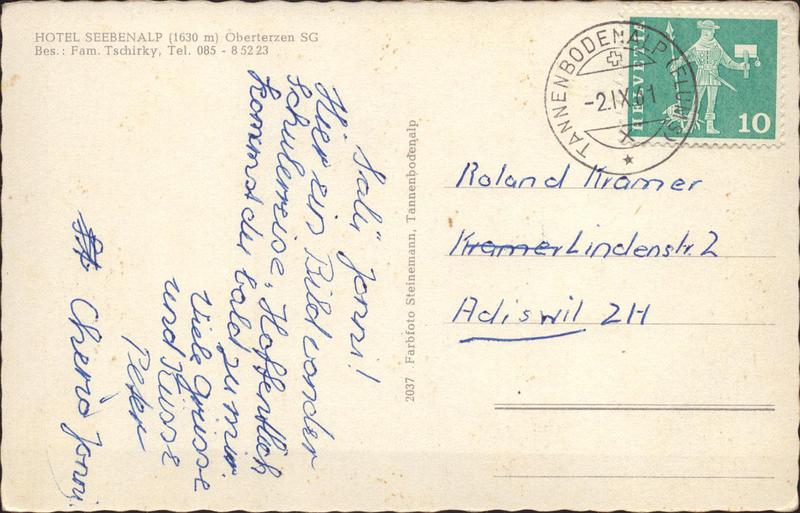 HOTEL SEEBENALP (1630 m) Oberterzen SG
Bes.: Fam. Tschirky, Tel. 085 - 8 52 23
Sali Jonni!
Hier ein Bild von der
Schulerreise. Hoffentlich
kommst du bald zu mir.
Viele Grüsse
und Küsse
Peter
Cherio Jonni.
2037 Farbfoto Steinemann, Tannenbodenalp
TANNENBODENALP (FLUMS)
-2.IX.61
HELVETIA
10
Roland Kramer
Kramer Lindenstr. 2
Adiswil ZH